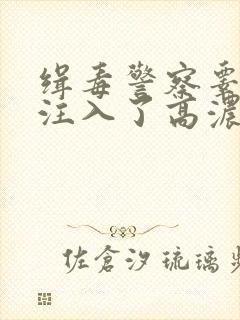 缉毒警察
注入了高浓
佐倉汐琉璃